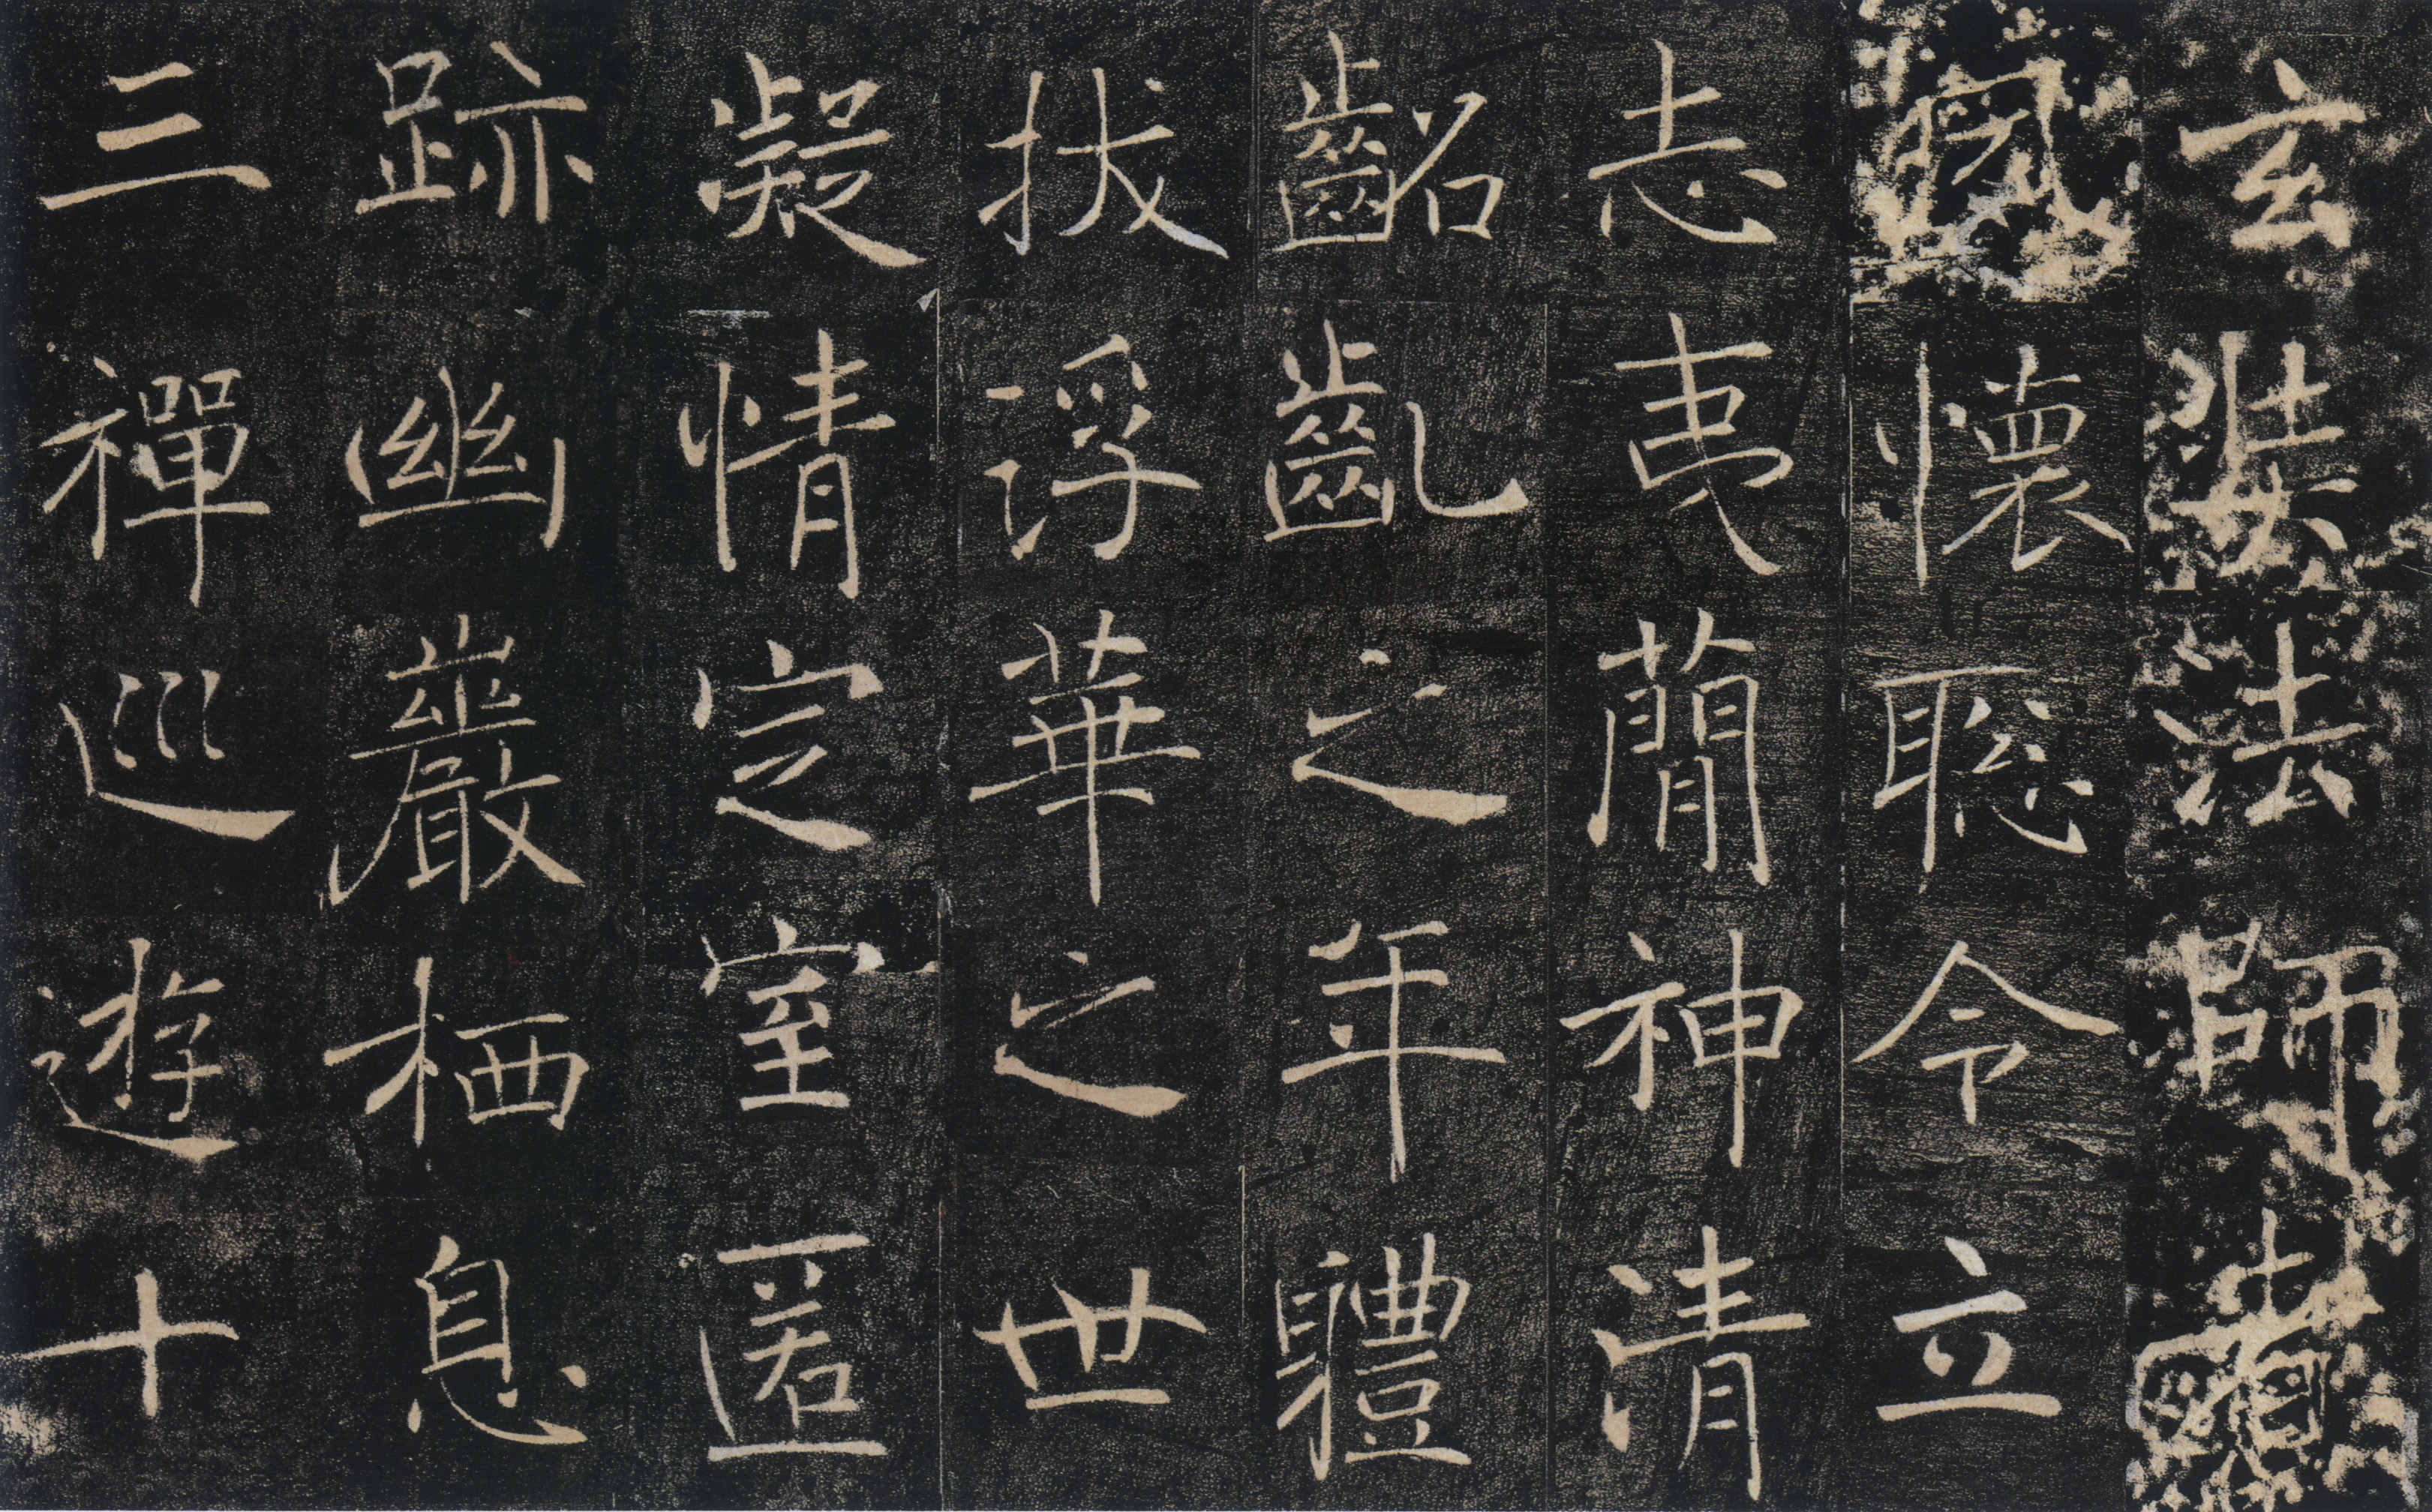 玄奘法師者
夙懷聡令立
志夷蕑神清
齠齓之年體
拔浮華之世
凝情定室匿
跡幽巖栖息
三禪巡遊十